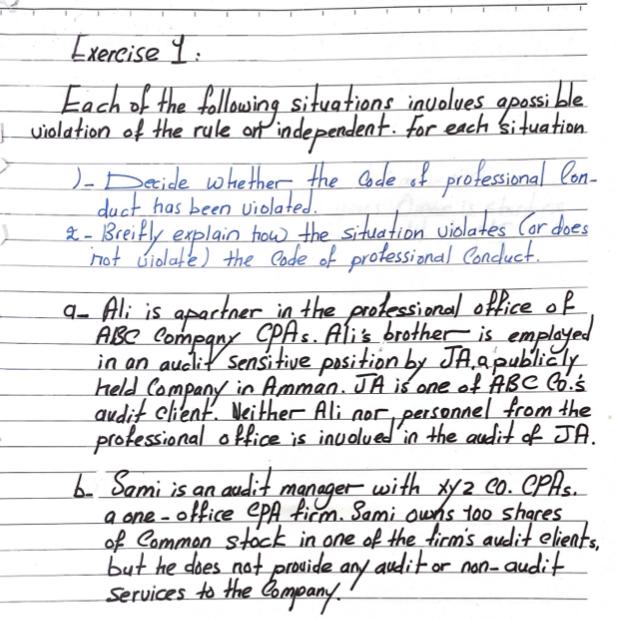 Exercise 1:
Each of the following situations involves a possible
violation of the rule on independent. For each situation
1- Decide whether the Code of professional Con-
duct has been violated.
2- Breifly explain how the situation violates (or does
not violate) the Code of professional Conduct.
a- Ali is a partner in the professional office of
ABC Company CPAs. Ali's brother is employed
in an audit sensitive position by JA, a publicly
held Company in Amman. JA is one of ABC Co.'s
audit client. Neither Ali nor personnel from the
professional office is involved in the audit of JA.
b- Sami is an audit manager with xyz co. CPAs.
a one-office CPA firm. Sami owns 100 shares
of Common stock in one of the firm's audit clients,
but he does not provide any audit or non-audit
services to the Company.